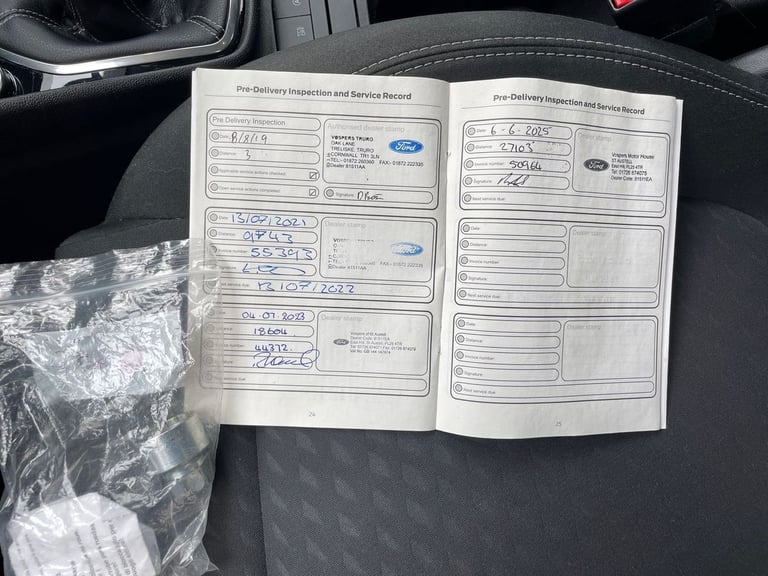 Pre-Delivery Inspection and Service Record
Pre Delivery Inspection
Date 8/8/19
Distance 3
Applicable service actions checked
Open service actions completed
Authorised dealer stamp
VOSPERS TRURO
OAK LANE
TRELISKE, TRURO
CORNWALL TR1 3LN
TEL:- 01872 260360 FAX- 01872 222335
Dealer 81511AA
Ford
Signature
Date 13/07/2021
Distance 9743
Invoice number 55393
Signature
Next service due: 13/07/2022
Dealer stamp
VOSPERS
Ford
FAX- 01872 222335
Dealer 81511AA
Date 04.07.2023
Distance 18604
Invoice number 44372
Signature
Next service due:
Dealer stamp
Ford
Vospers of St Austell
24
Pre-Delivery Inspection and Service Record
Date: 6-6-2025
Distance: 27103
Invoice number: 50964
Signature:
Next service due:
Dealer stamp
Ford
Vospers Motor House
ST AUSTELL
East Hill, PL25 4TR
Tel: 01726 874075
Dealer Code: 81511EA
Date:
Distance:
Invoice number:
Signature:
Next service due:
Dealer stamp
Date:
Distance:
Invoice number:
Signature:
Next service due:
Dealer stamp
25